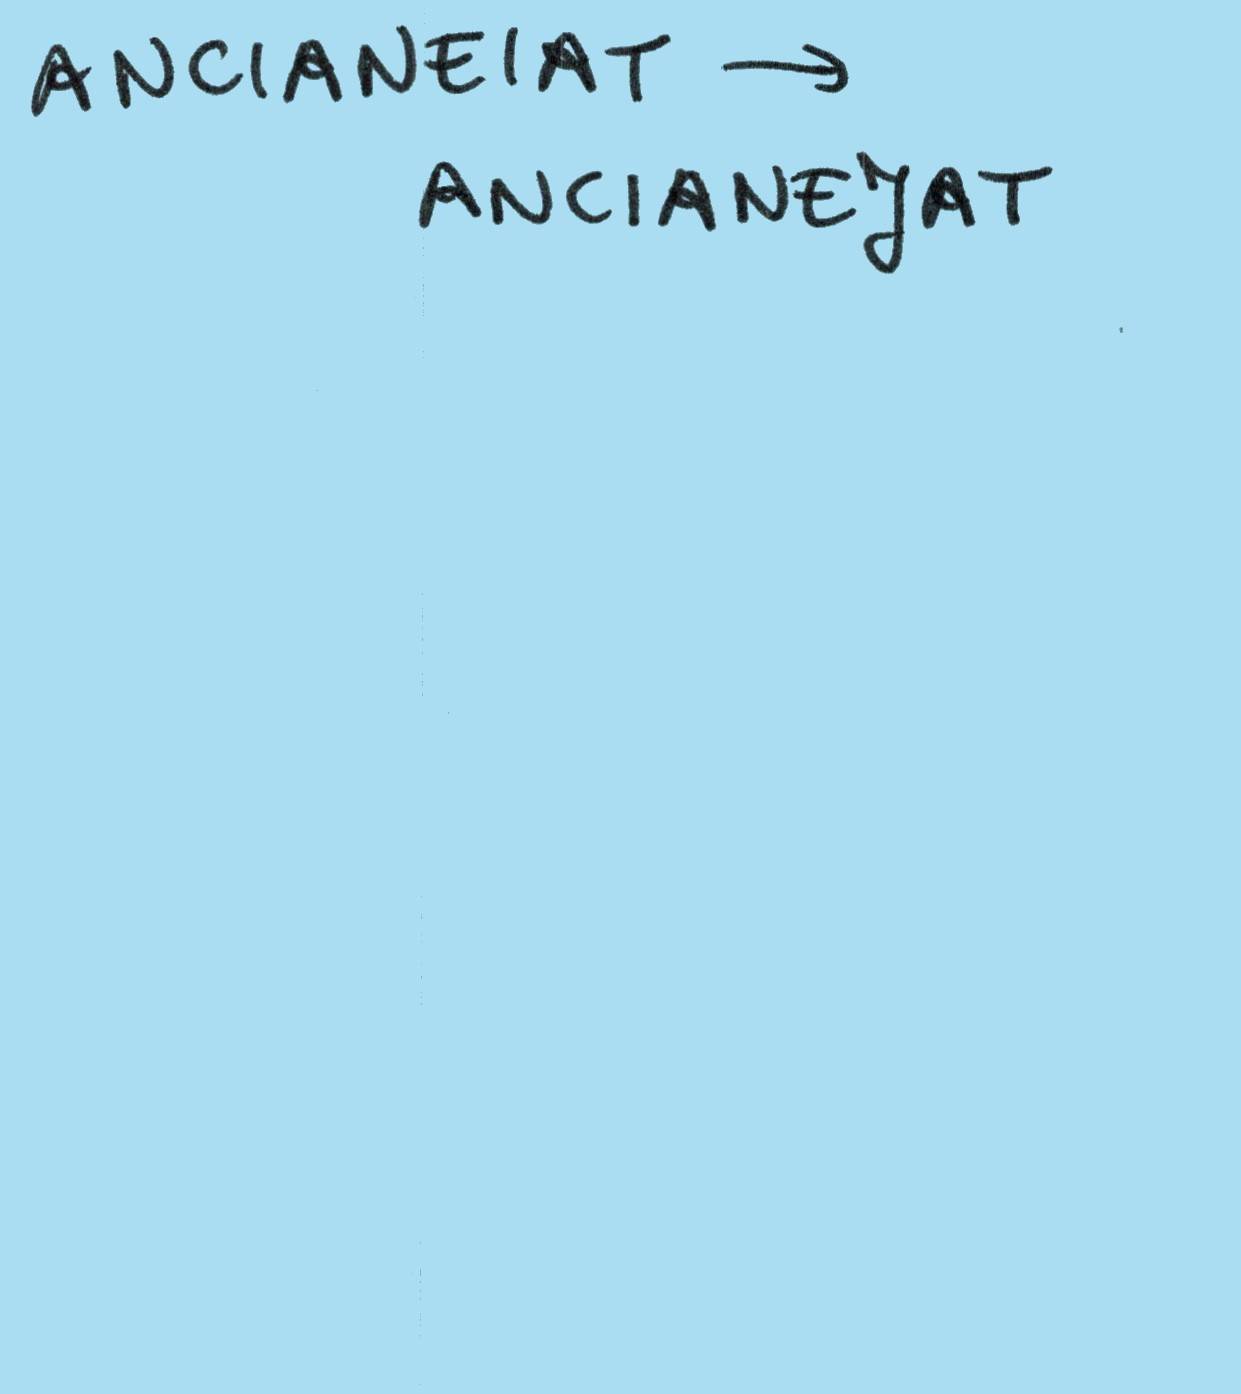 ANCIANEIAT →
ANCIANEYAT